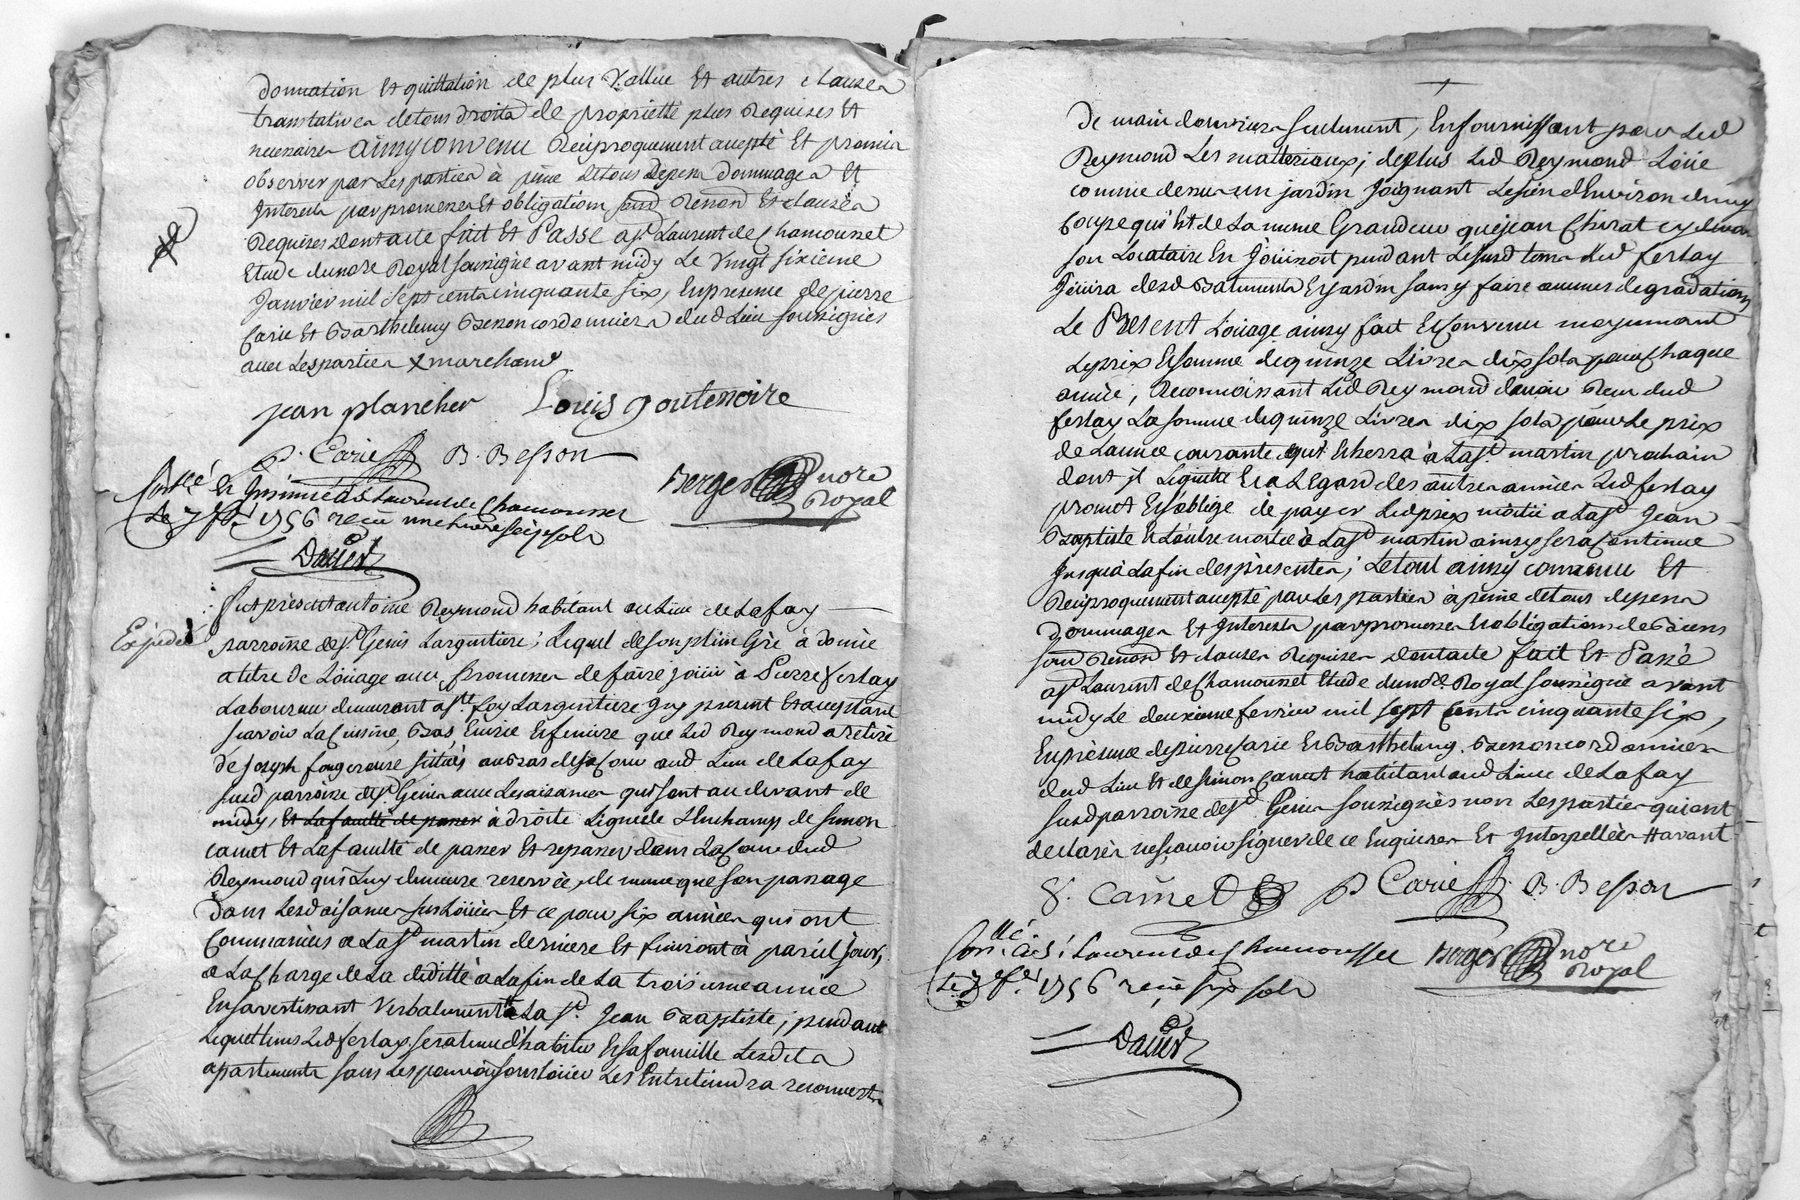 donnation et quittation de plus vallue et autres clauses
translatives de tous droits de proprietté plus requises et
necessaires ainsy convenu reciproquement accepté et promis
observer par les parties à peine de tous depens dommages et
interests par promesses et obligations soud renond et clauses
requises dont acte fait et Passé a St Laurent de Chamousset
etude du nore Royal soussigné avant midy le vingt sixieme
Janvier mil sept cents cinquante six, en presence de pierre
Carie et Barthelemy Besson cordonniers dud Lieu soussignés
avec les parties x marchand
jean plancher Louis goutenoire
P. Carie B. Besson
Berger nore
Royal
Conllé et Insinué à St Laurent de Chamousset
Le 1756 reçu sols
Dauier
Expedié
Fut présent antoine Reymond habitant au Lieu de Lafay
parroisse de St Genis Largentiere; Lequel de son plein Gré à donné
a titre de Loüage avec promesses de faire joüir à Pierre ferlay
Laboureur demeurant a Ste foy Largentiere Icy present et acceptant
sçavoir La Cuisine, Bas, Ecurie et feniere que Led Reymond a retiré
de Joseph fougerouse sittués au Bas de sa Cour aud Lieu de Lafay
susd parroisse de St Genis avec Les aisances qui sont au devant de
midy, et La faculté de passer à droite Ligne de Champs de simon
camet et La faculté de passer et repasser dans La Cour dud
Reymond qui Luy demeure reservée de meme que son passage
dans Lesd aisances sus Loüées et ce pour six années qui ont
Commancées a La St martin derniere et finiront à pareil jour,
a La Charge de La deditte a La fin de La troisieme année
En s'avertissant Verbalement a La St Jean Baptiste; pendant
Lequel tems Led ferlay sera tenu d'habiter et sa famille Lesdits
apartements sans Les pouvoir sous Loüer Les Entretiendra recouverts
De main d'ouvriers seulement, En fournissant par Led
Reymond Les matteriaux; de plus Led Reymond Loüe
comme dessus un jardin joignant Le sien d'Environ demy
Coupe qui est de La meme Grandeur que jean Chirat cy devant
son Locataire En joüissoit pendant Lesusd tems Led ferlay
Joüira desd Batiments et jardin sans y faire aucunes degradations
Le Present Loüage ainsy fait et Convenu moyennant
Le prix et somme de quinze Livres dix sols pour Chaque
année, Reconnoissant Led Reymond d'avoir Reçu dud
ferlay La somme de quinze Livres dix sols pour Le prix
de L'année courante qui Echerra à La St martin prochain
dont il Lequitte et a L'Egard des autres années Led ferlay
promet et s'oblige de payer Led prix moitié a La St Jean
Baptiste et L'autre moitié à La St martin ainsy sera Continué
Jusqu'à La fin des présentes; Le tout ainsy convenu et
Reciproquement accepté par Les parties à peine de tous depens
Dommages et Interests par promesses et obligations de Biens
soud Renond et clauses Requises dont acte fait et Passé
a St Laurent de Chamousset Etude dud nore Royal soussigné avant
midy Le deuxieme fevrier mil sept Cents cinquante six,
En présence de pierre Carie et Barthelemy Besson cordonniers
dud Lieu et de simon Camet habitant aud Lieu de Lafay
susd parroisse de St Genis soussignés non Les parties qui ont
declaré ne sçavoir signer de ce Enquises et Interpellées avant
S. Camet P Carie B. Besson
Conllé à St Laurent de Chamousset
Le 1756 reçu six sols
Berger nore
Royal
Dauier